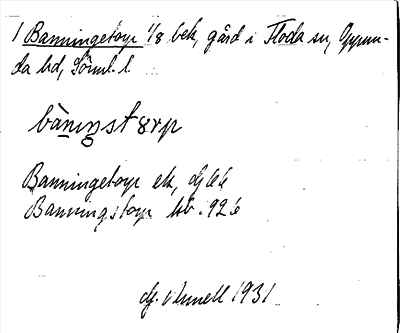 1 Banningetorp 1/8 bek, gård i Floda sn, Oppun-
da hd, Söml. l.
bàni̱ŋstɜrp
Banningetorp ek,
Banningstorp kb. 92
1931